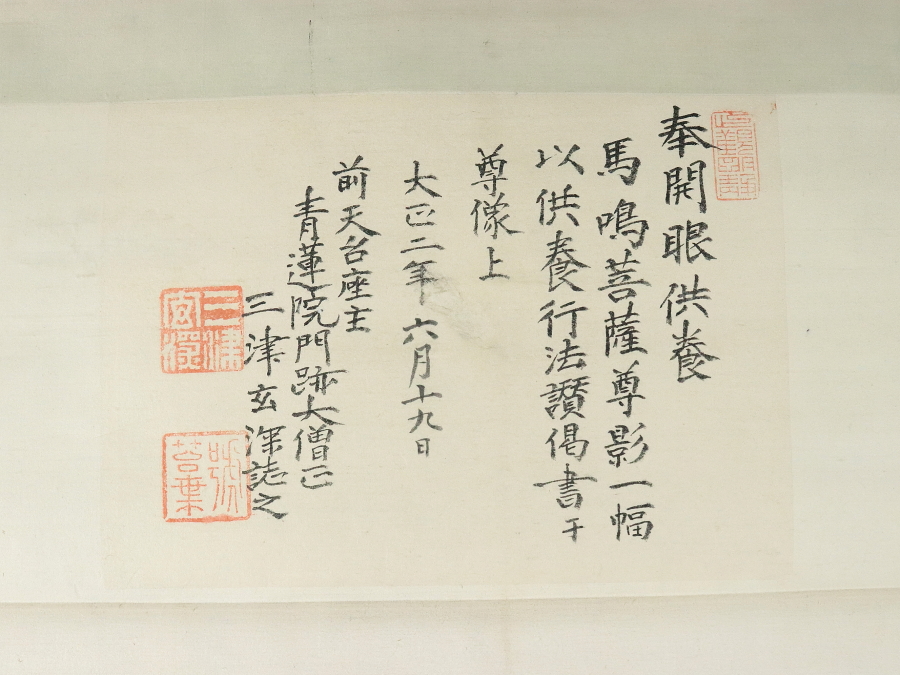 奉開眼供養
馬鳴菩薩尊影一幅
以供養行法讃偈書于
尊像上
大正二年六月十九日
前天台座主
青蓮院門跡大僧正
三津玄深誌之
三津
玄深
号
苔葉